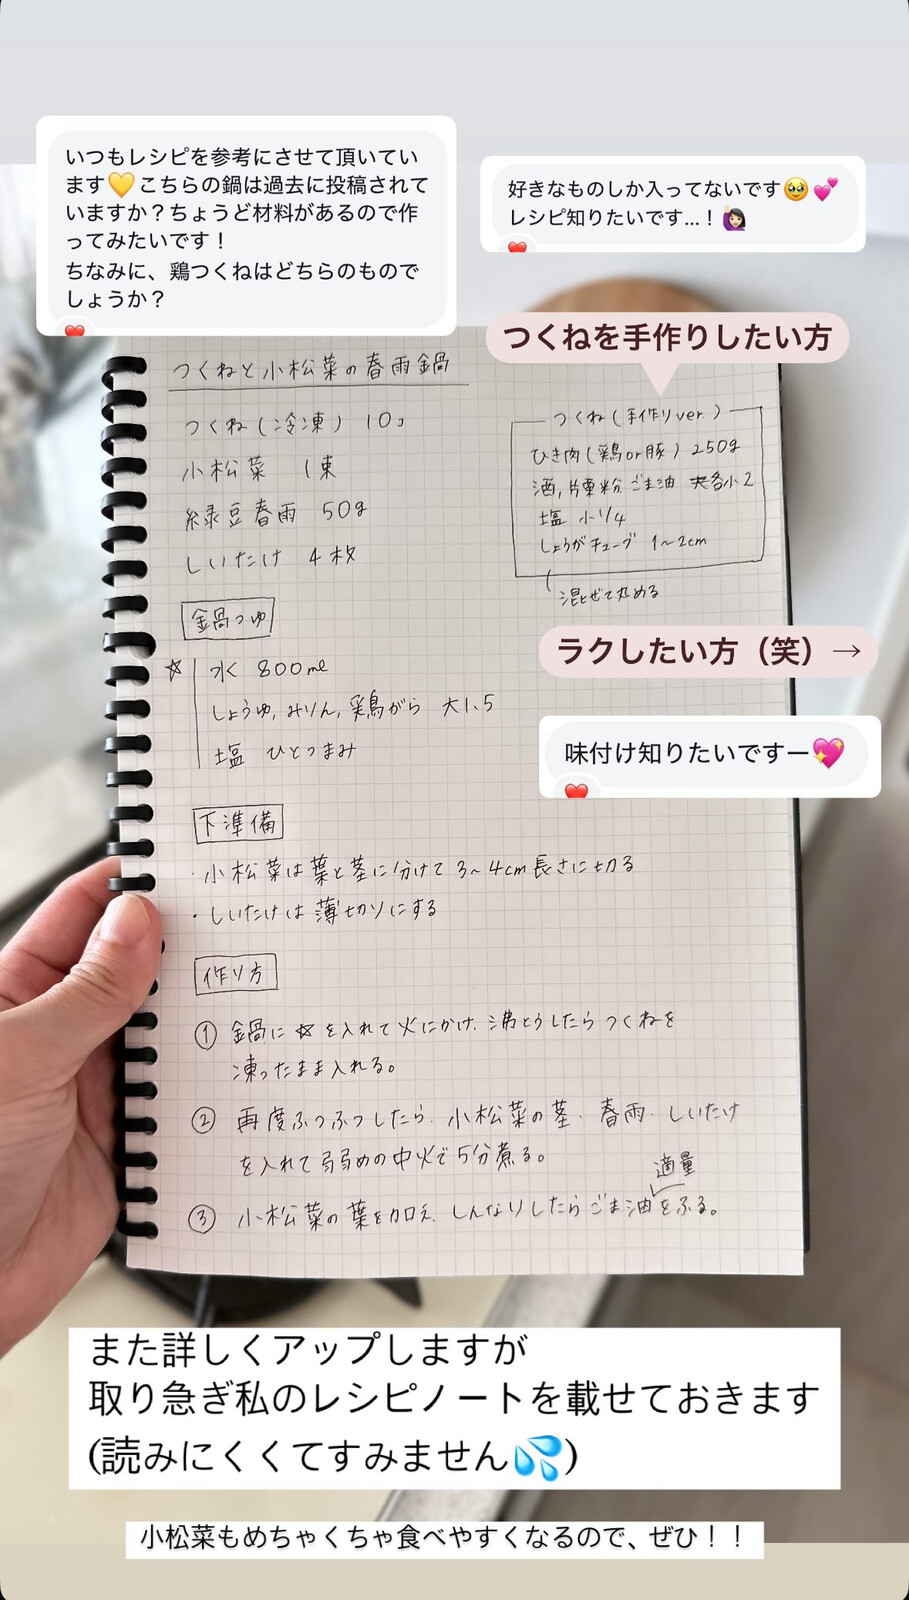 いつもレシピを参考にさせて頂いてい
ます💛こちらの鍋は過去に投稿されて
いますか？ちょうど材料があるので作
ってみたいです！
ちなみに、鶏つくねはどちらのもので
しょうか？
好きなものしか入ってないです🥹💕
レシピ知りたいです...！🙋🏻‍♀️
つくねを手作りしたい方
つくねと小松菜の春雨鍋
つくね(冷凍) 10コ
小松菜 1束
緑豆春雨 50g
しいたけ 4枚
つくね(手作りver.)
ひき肉(鶏or豚) 250g
酒,片栗粉,ごま油 各小2
塩 小1/4
しょうがチューブ 1〜2cm
混ぜて丸める
ラクしたい方（笑）→
味付け知りたいですー💖
鍋つゆ
☆ 水 800ml
しょうゆ,みりん,鶏がら 大1.5
塩 ひとつまみ
下準備
・小松菜は葉と茎に分けて3〜4cm長さに切る
・しいたけは薄切りにする
作り方
① 鍋に☆を入れて火にかけ、沸とうしたらつくねを
凍ったまま入れる。
② 再度ふつふつしたら、小松菜の茎、春雨、しいたけ
を入れて弱めの中火で5分煮る。
適量
③ 小松菜の葉を加え、しんなりしたらごま油をふる。
また詳しくアップしますが
取り急ぎ私のレシピノートを載せておきます
(読みにくくてすみません💦)
小松菜もめちゃくちゃ食べやすくなるので、ぜひ！！